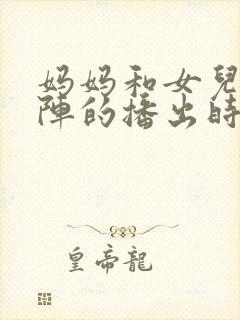 妈妈和女兒
陣的播出時
皇帝龍